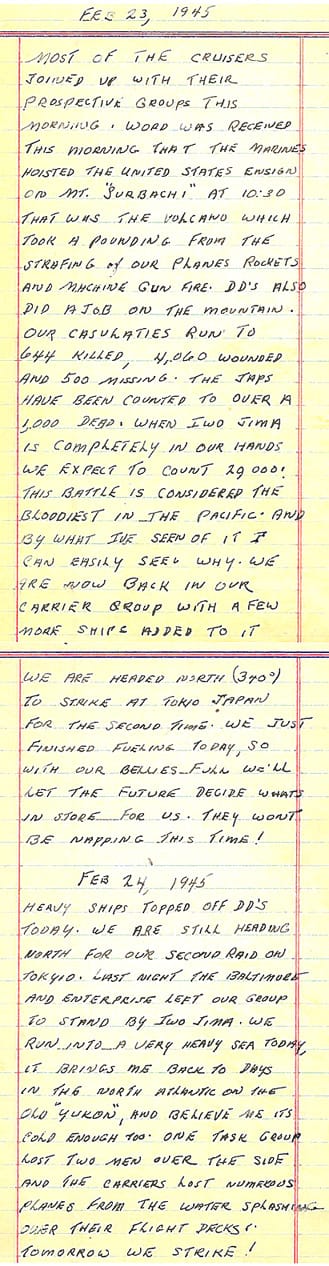 FEB 23, 1945
MOST OF THE CRUISERS
JOINED UP WITH THEIR
PROSPECTIVE GROUPS THIS
MORNING. WORD WAS RECEIVED
THIS MORNING THAT THE MARINES
HOISTED THE UNITED STATES ENSIGN
ON MT. "SURBACHI" AT 10:30
THAT WAS THE VOLCANO WHICH
TOOK A POUNDING FROM THE
STRAFING OF OUR PLANES ROCKETS
AND MACHINE GUN FIRE. DD'S ALSO
DID A JOB ON THE MOUNTAIN.
OUR CASULATIES RUN TO
644 KILLED, 4,060 WOUNDED
AND 500 MISSING. THE JAPS
HAVE BEEN COUNTED TO OVER A
1,000 DEAD. WHEN IWO JIMA
IS COMPLETELY IN OUR HANDS
WE EXPECT TO COUNT 29000!
THIS BATTLE IS CONSIDERED THE
BLOODIEST IN THE PACIFIC. AND
BY WHAT IVE SEEN OF IT I
CAN EASILY SEE WHY. WE
ARE NOW BACK IN OUR
CARRIER GROUP WITH A FEW
MORE SHIPS ADDED TO IT
WE ARE HEADED NORTH (340°)
TO STRIKE AT TOKIO JAPAN
FOR THE SECOND TIME. WE JUST
FINISHED FUELING TODAY, SO
WITH OUR BELLIES FULL WE'LL
LET THE FUTURE DECIDE WHATS
IN STORE FOR US. THEY WONT
BE NAPPING THIS TIME!
FEB 24, 1945
HEAVY SHIPS TOPPED OFF DD'S
TODAY. WE ARE STILL HEADING
NORTH FOR OUR SECOND RAID ON
TOKYIO. LAST NIGHT THE BALTIMORE
AND ENTERPRISE LEFT OUR GROUP
TO STAND BY IWO JIMA. WE
RUN INTO A VERY HEAVY SEA TODAY,
IT BRINGS ME BACK TO DAYS
IN THE NORTH ATLANTIC ON THE
OLD "YUKON", AND BELIEVE ME ITS
COLD ENOUGH TOO. ONE TASK GROUP
LOST TWO MEN OVER THE SIDE
AND THE CARRIERS LOST NUMEROUS
PLANES FROM THE WATER SPLASHING
OVER THEIR FLIGHT DECKS!
TOMORROW WE STRIKE!